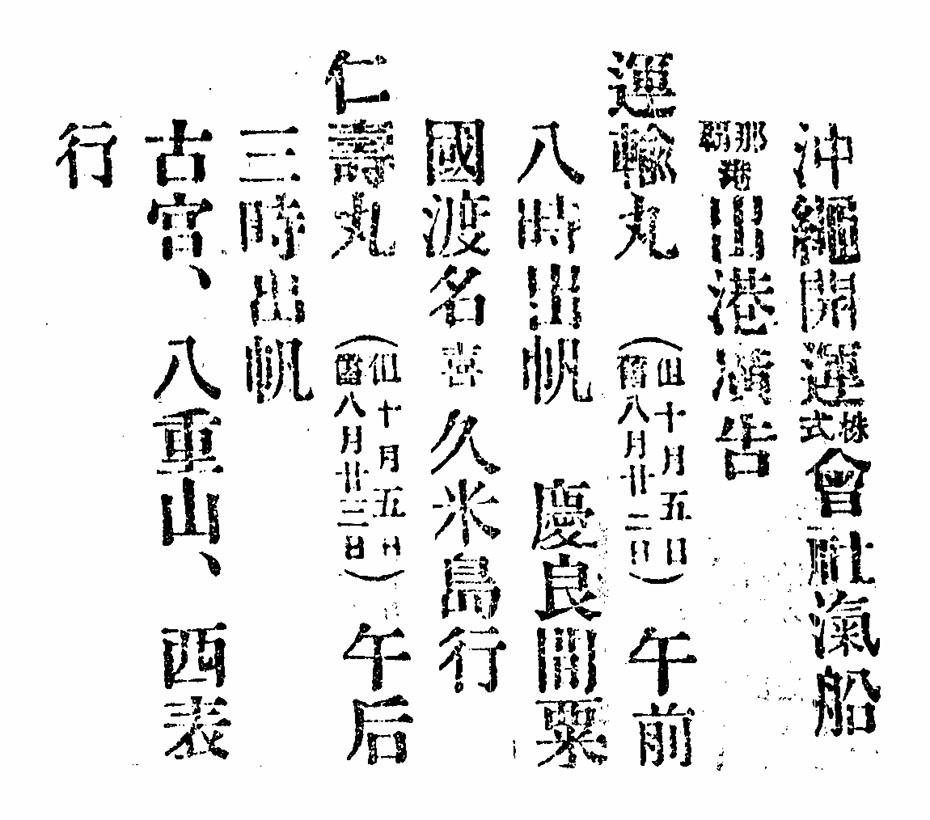 沖繩開運株式會社滊船
那覇港出港濱告
運輸丸(但十月五日舊八月廿二日)午前
八時出帆 慶良間粟
國渡名喜久米島行
仁壽丸(但十月五日舊八月廿三日)午后
三時出帆
古宮、八重山、西表
行